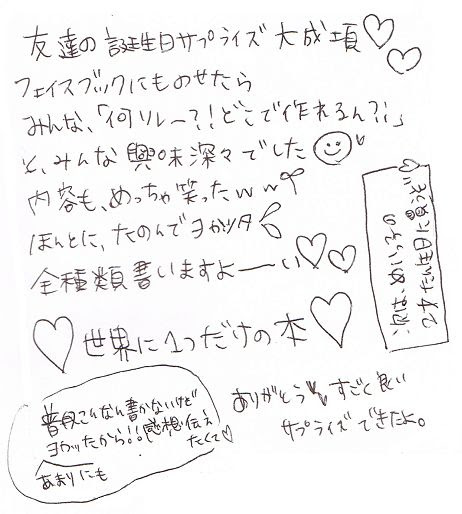 友達の誕生日サプライズ大成項♡♡
フェイスブックにものせたら
みんな、「何ソレー?!どこで作れるん?!」
と、みんな興味深々でした
内容も、めっちゃ笑ったww
ほんとに、たのんでヨカッタ
全種類書いますよーーい♡♡
♡世界に1つだけの本♡
ありがとう すごく良い
サプライズできたよ。
普段こんなん書かないけど
あまりにも
ヨカッたから!!感想伝え
たくて♡
次は、めいっこの
2才たん生日に買うぞ♡